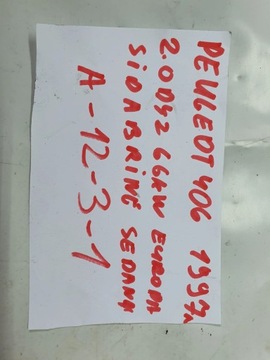 PEUGEOT 406 1997m
2.0 Dyz 66kW EUROPA
SIDABRINĖ SEDANAS
A-12-3-1